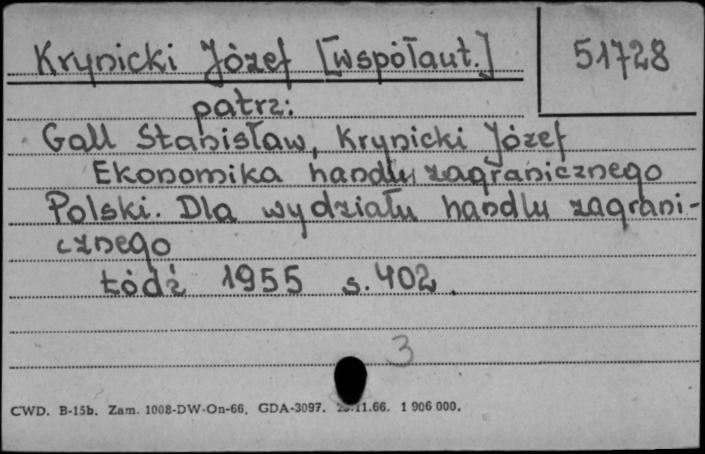 Krynicki Józef [współaut.] 51728
patrz:
Gall Stanisław, Krynicki Józef
Ekonomika handlu zagranicznego
Polski. Dla wydziału handlu zagrani-
cznego
Łódź 1955 s. 402.
3
CWD. B-15b. Zam. 1008-DW-On-66. GDA-3097. 11.66. 1 906 000.